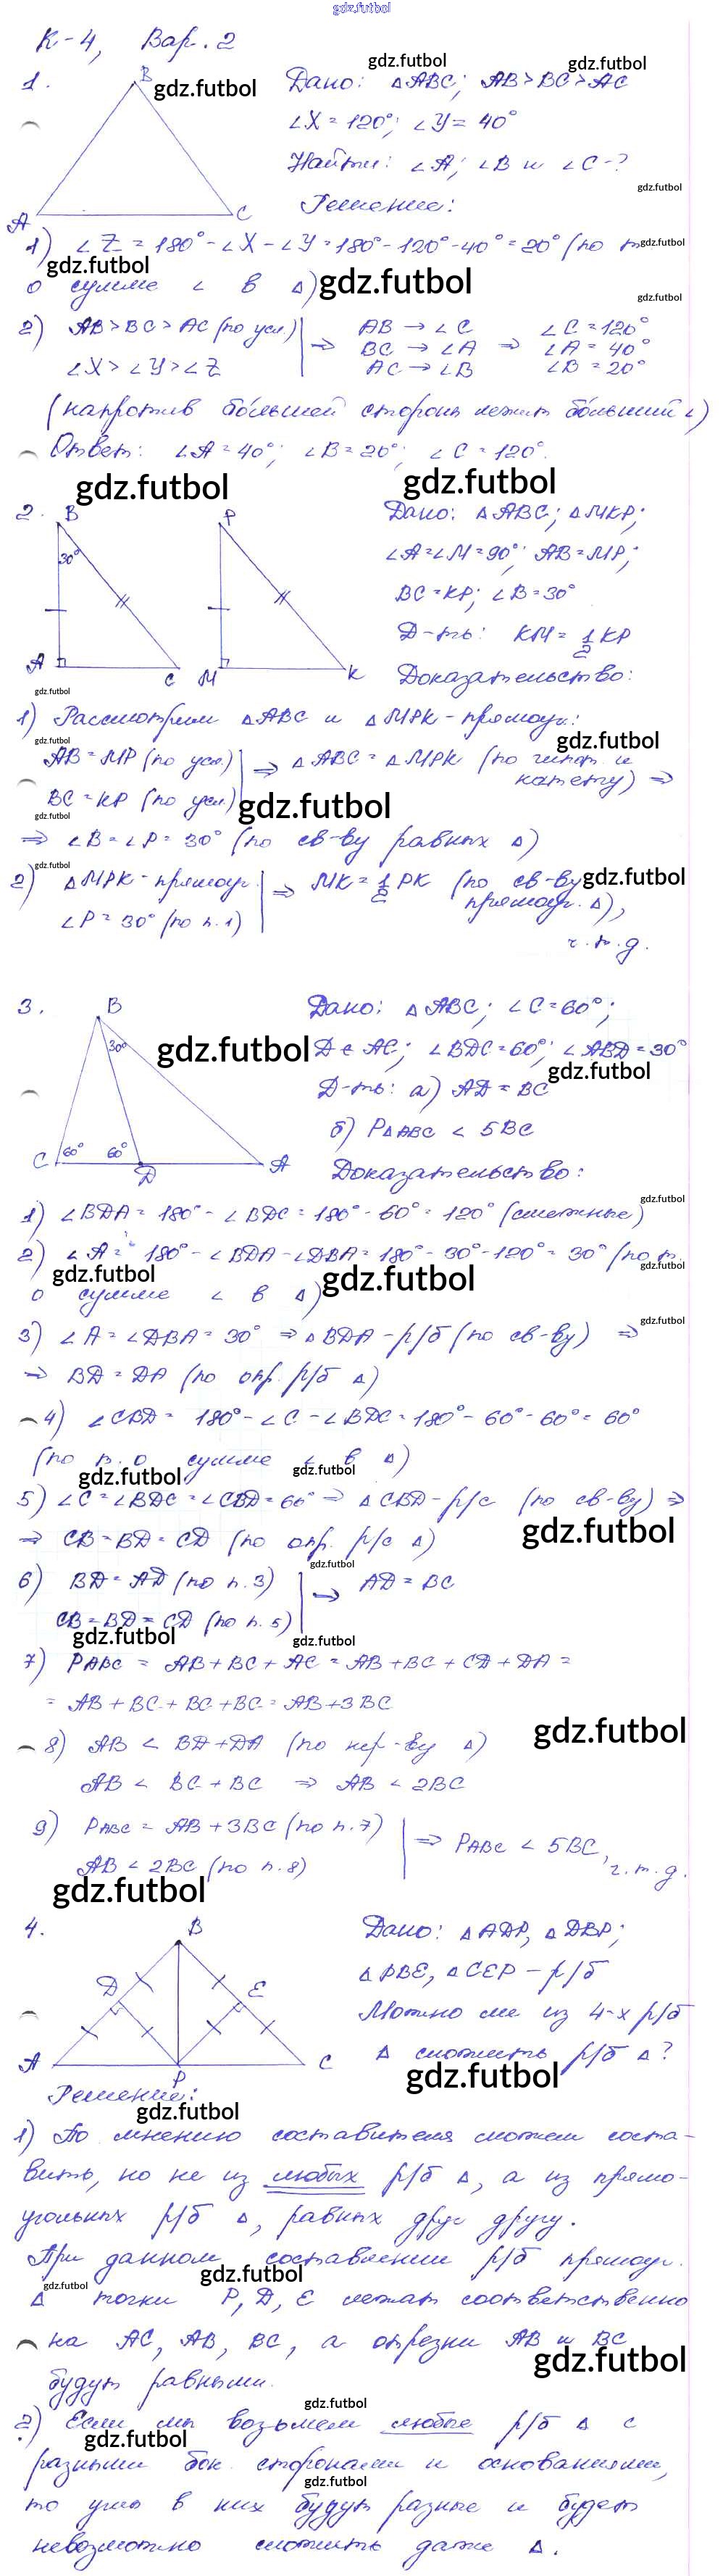 gdz.futbol
К-4, Вар. 2
1.
B
A
C
gdz.futbol
gdz.futbol
gdz.futbol
Дано: △ABC; AB>BC>AC
∠X = 120°; ∠Y = 40°
Найти: ∠A; ∠B и ∠C-?
gdz.futbol
Решение:
1) ∠Z = 180° - ∠X - ∠Y = 180° - 120° - 40° = 20° (по т.
gdz.futbol
gdz.futbol
о сумме ∠ в △)
gdz.futbol
gdz.futbol
2) AB>BC>AC (по усл.) | ⇒ AB → ∠C ∠C = 120°
BC → ∠A ⇒ ∠A = 40°
∠X > ∠Y > ∠Z AC → ∠B ∠B = 20°
(напротив большей стороны лежит больший ∠)
Ответ: ∠A = 40°; ∠B = 20°; ∠C = 120°.
gdz.futbol
gdz.futbol
2.
B
30°
A
C
P
M
K
Дано: △ABC; △MKP;
∠A = ∠M = 90°; AB = MP;
BC = KP; ∠B = 30°
Д-ть: KM = 1/2 KP
Доказательство:
gdz.futbol
1) Рассмотрим △ABC и △MPK - прямоуг.:
gdz.futbol
gdz.futbol
AB = MP (по усл.) | ⇒ △ABC = △MPK (по гипот. и
катету) ⇒
BC = KP (по усл.)
gdz.futbol
gdz.futbol
⇒ ∠B = ∠P = 30° (по св-ву равных △)
gdz.futbol
2) △MPK - прямоуг. | ⇒ MK = 1/2 PK (по св-ву
gdz.futbol
прямоуг. △),
∠P = 30° (по п. 1)
ч.т.д.
3.
B
30°
C
60° 60°
D
A
gdz.futbol
Дано: △ABC; ∠C = 60°;
D ∈ AC; ∠BDC = 60°; ∠ABD = 30°
gdz.futbol
Д-ть: а) AD = BC
б) P△ABC < 5BC
Доказательство:
gdz.futbol
1) ∠BDA = 180° - ∠BDC = 180° - 60° = 120° (смежные)
2) ∠A = 180° - ∠BDA - ∠DBA = 180° - 30° - 120° = 30° (по т.
gdz.futbol
gdz.futbol
о сумме ∠ в △)
gdz.futbol
gdz.futbol
3) ∠A = ∠DBA = 30° ⇒ △BDA - р/б (по св-ву) ⇒
⇒ BD = DA (по опр. р/б △)
4) ∠CBD = 180° - ∠C - ∠BDC = 180° - 60° - 60° = 60°
(по т. о сумме ∠ в △)
gdz.futbol
gdz.futbol
5) ∠C = ∠BDC = ∠CBD = 60° ⇒ △CBD - р/с (по св-ву) ⇒
gdz.futbol
⇒ CB = BD = CD (по опр. р/с △)
gdz.futbol
6) BD = AD (по п. 3) | ⇒ AD = BC
CB = BD = CD (по п. 5)
gdz.futbol
gdz.futbol
7) PABC = AB + BC + AC = AB + BC + CD + DA =
= AB + BC + BC + BC = AB + 3BC
gdz.futbol
8) AB < BD + DA (по нер-ву △)
AB < BC + BC ⇒ AB < 2BC
9) PABC = AB + 3BC (по п. 7) | ⇒ PABC < 5BC,
AB < 2BC (по п. 8)
ч.т.д.
gdz.futbol
4.
B
D
E
A
P
C
Дано: △ADP, △DBP;
△PBE, △CEP - р/б
Можно ли из 4-х р/б
△ сложить р/б △?
gdz.futbol
Решение:
gdz.futbol
1) По мнению составителя можем соста-
вить, но не из любых р/б △, а из прямо-
угольных р/б △, равных друг другу.
При данном составлении р/б прямоуг.
gdz.futbol
gdz.futbol
△ точки P, D, E лежат соответственно
на AC, AB, BC, а отрезки AB и BC
gdz.futbol
будут равными.
gdz.futbol
2) Если мы возьмем любые р/б △ с
gdz.futbol
разными бок. сторонами и основаниями,
gdz.futbol
то углы в них будут разные и будет
невозможно сложить даже △.